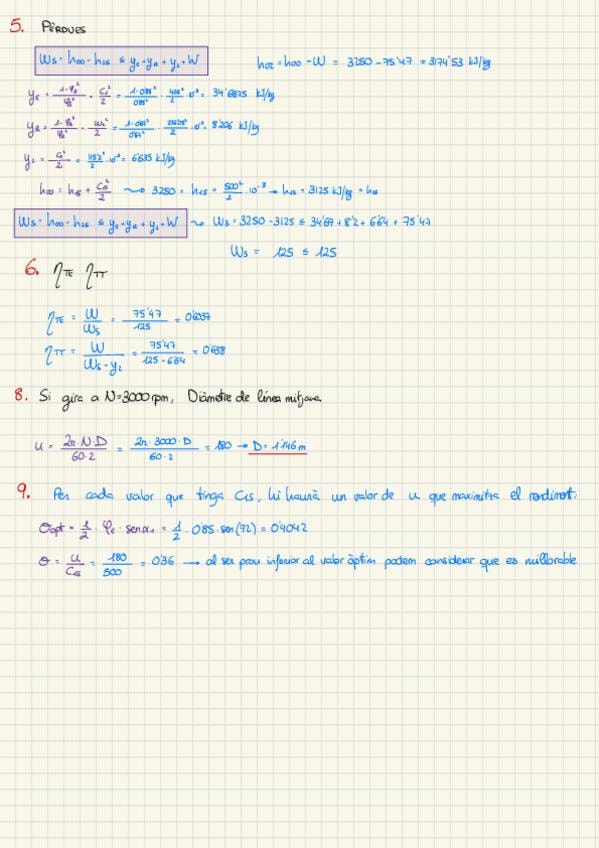 5. PÈRDUES
Ws = h00 - h2s ≤ yE + yR + y2 + W
h02 = h00 - W = 3250 - 75'47 = 3174'53 kJ/kg
yE = 1-φE²/φE² · C1²/2 = 1-0'85²/0'85² · 425²/2 · 10⁻³ = 34'6875 kJ/kg
yR = 1-φR²/φR² · W2²/2 = · 10⁻³ = 8'206 kJ/kg
y2 = C2²/2 = 115'2²/2 · 10⁻³ = 6'635 kJ/kg
h00 = h1s + C1s²/2 ⇝ 3250 = h1s + 500²/2 · 10⁻³ → h1s = 3125 kJ/kg =
Ws = h00 - h2s ≤ yE + yR + y2 + W ⇝ Ws = 3250 - 3125 ≤ 34'69 + 8'2 + 6'64 + 75'47
Ws = 125 ≤ 125
6. ηTE ηTT
ηTE = W/Ws = 75'47/125 = 0'6037
ηTT = W/Ws-y2 = 75'47/125-6'64 = 0'638
8. Si gira a N=3000 rpm, Diàmetre de línea mitjana
u = 2π·N·D/60·2 = 2π·3000·D/60·2 = 180 → D = 1'146 m
9. Per cada valor que tinga C1s, hi haurà un valor de u que maximitza el rendiment:
σopt = 1/2 · φE · sen α1 = 1/2 · 0'85 · sen(72) = 0'4042
σ = u/C1s = 180/500 = 0'36 → al ser prou inferior al valor òptim podem considerar que es millorable